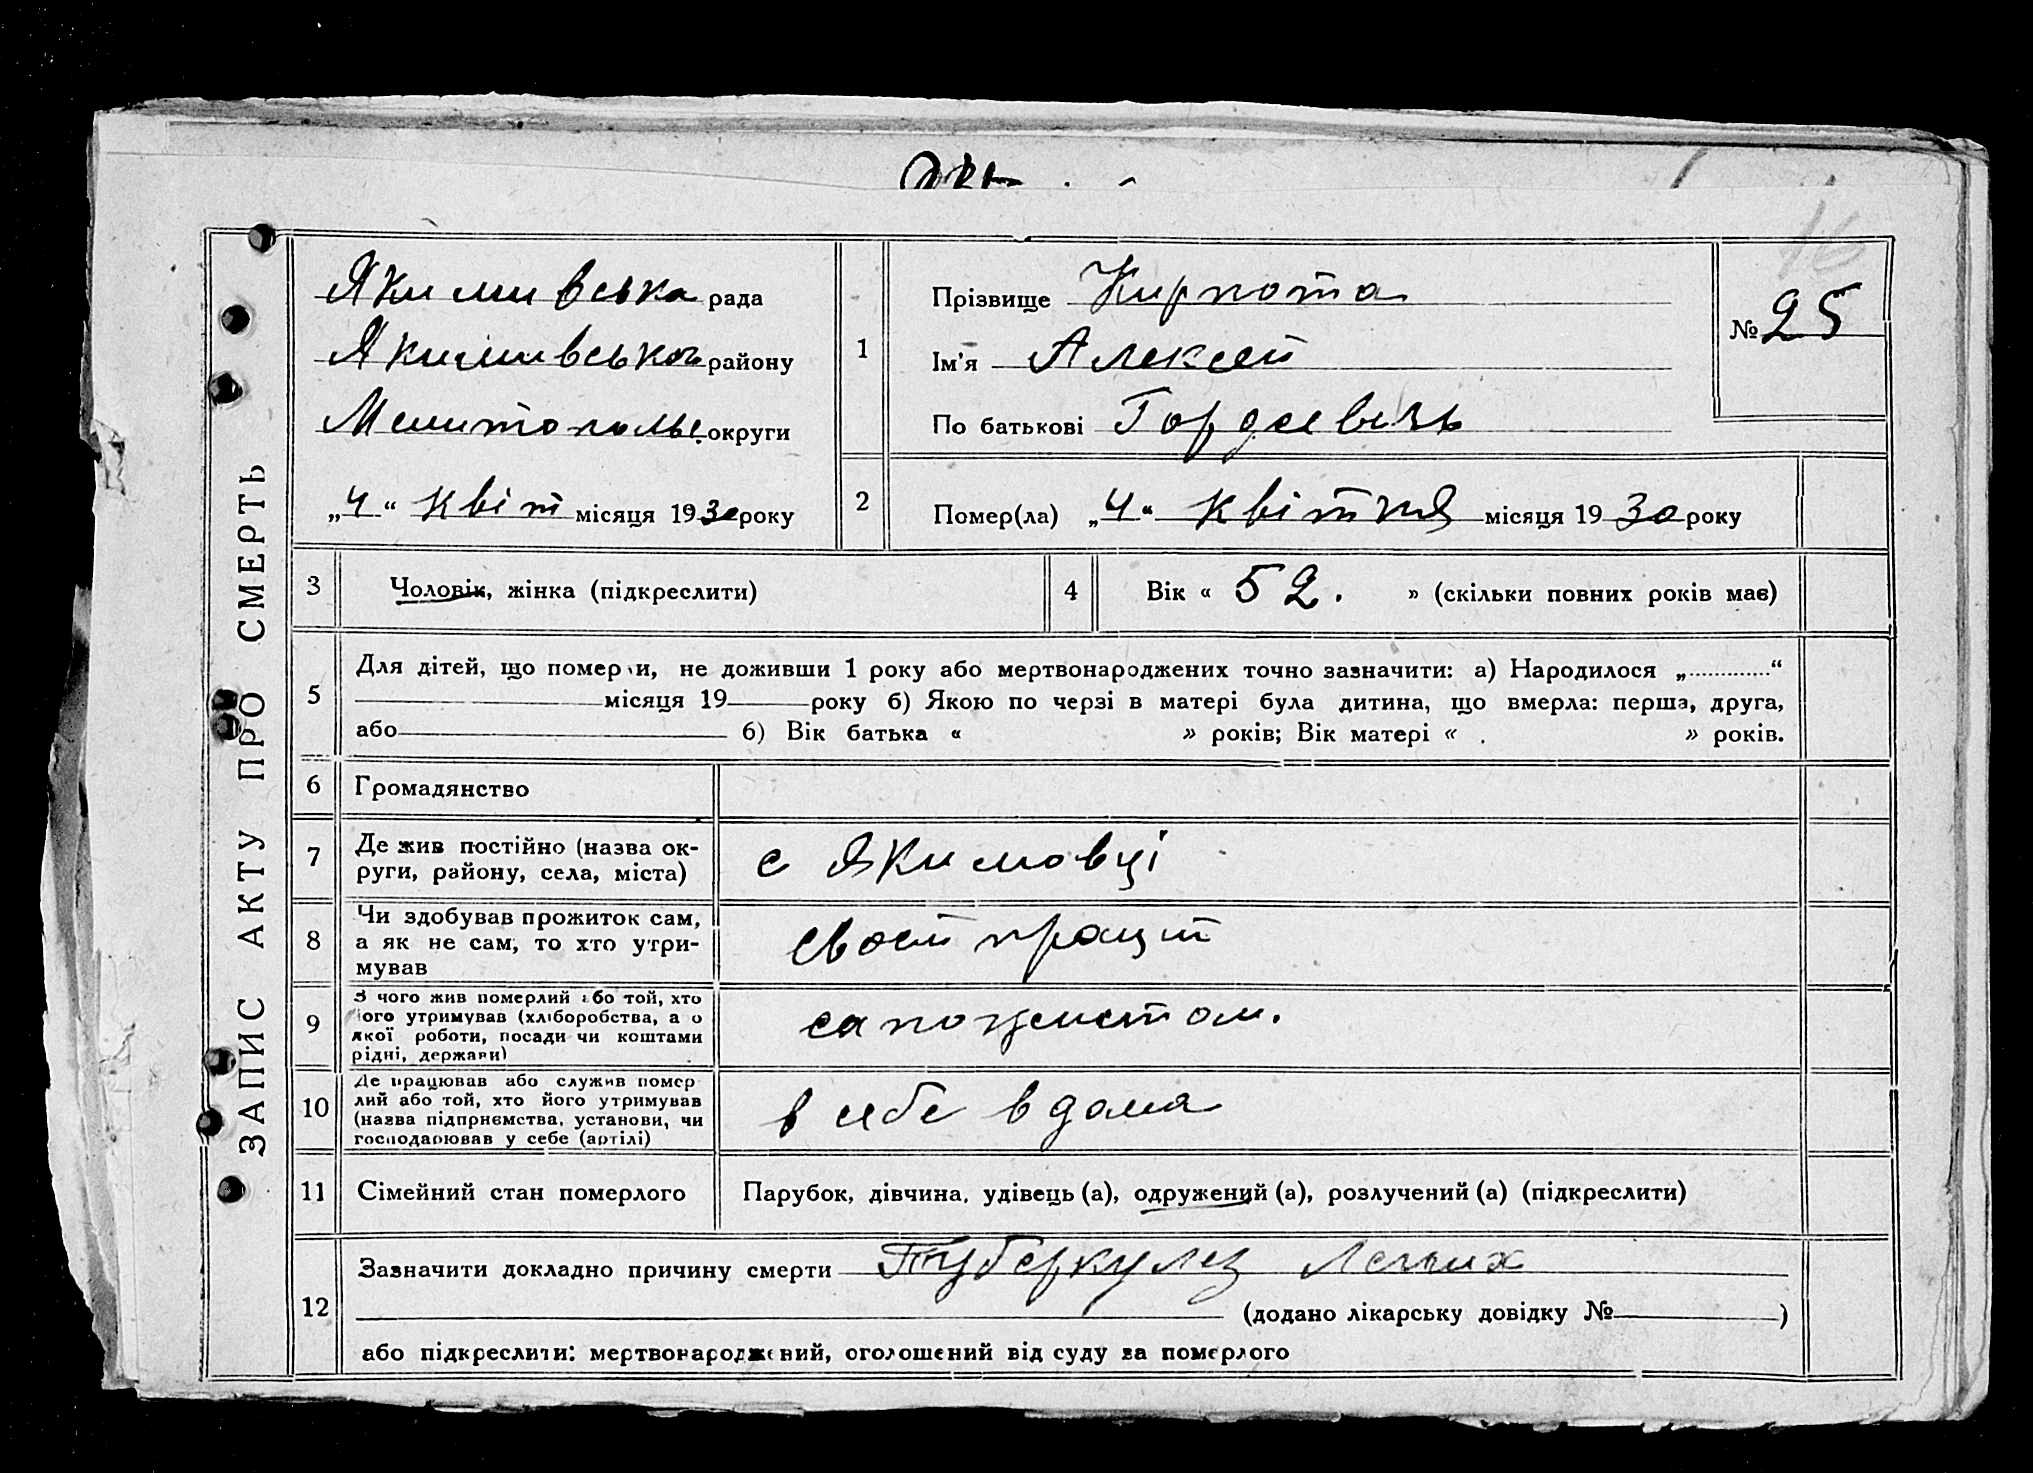 16
ЗАПИС АКТУ ПРО СМЕРТЬ
Якимивська рада
Якимивськой району
Мелитопольс. округи
„4“ Квіт місяця 1930 року
1
Прізвище Кирпота
Ім'я Алексей
По батькові Гордеевичь
№ 25
2
Помер(ла) „4“ Квітня місяця 1930 року
3 Чоловік, жінка (підкреслити)
4 Вік « 52. » (скільки повних років має)
5
Для дітей, що померли, не доживши 1 року або мертвонароджених точно зазначити: а) Народилося „ “
місяця 19 року б) Якою по черзі в матері була дитина, що вмерла: перша, друга,
або б) Вік батька « » років; Вік матері « » років.
6 Громадянство
7 Де жив постійно (назва ок-
руги, району, села, міста)
с Якимовці
8 Чи здобував прожиток сам,
а як не сам, то хто утри-
мував
своей працей
9 З чого жив померлий або той, хто
його утримував (хліборобства, або
якої роботи, посади чи коштами
рідні, держави)
10 Де працював або служив помер
лий або той, хто його утримував
(назва підприємства, установи, чи
господарював у себе (артілі)
в себе в дома
11 Сімейний стан померлого
Парубок, дівчина, удівець (а), одружений (а), розлучений (а) (підкреслити)
12
Зазначити докладно причину смерти Туберкулез Легких
(додано лікарську довідку № )
або підкреслити: мертвонароджений, оголошений від суду за померлого